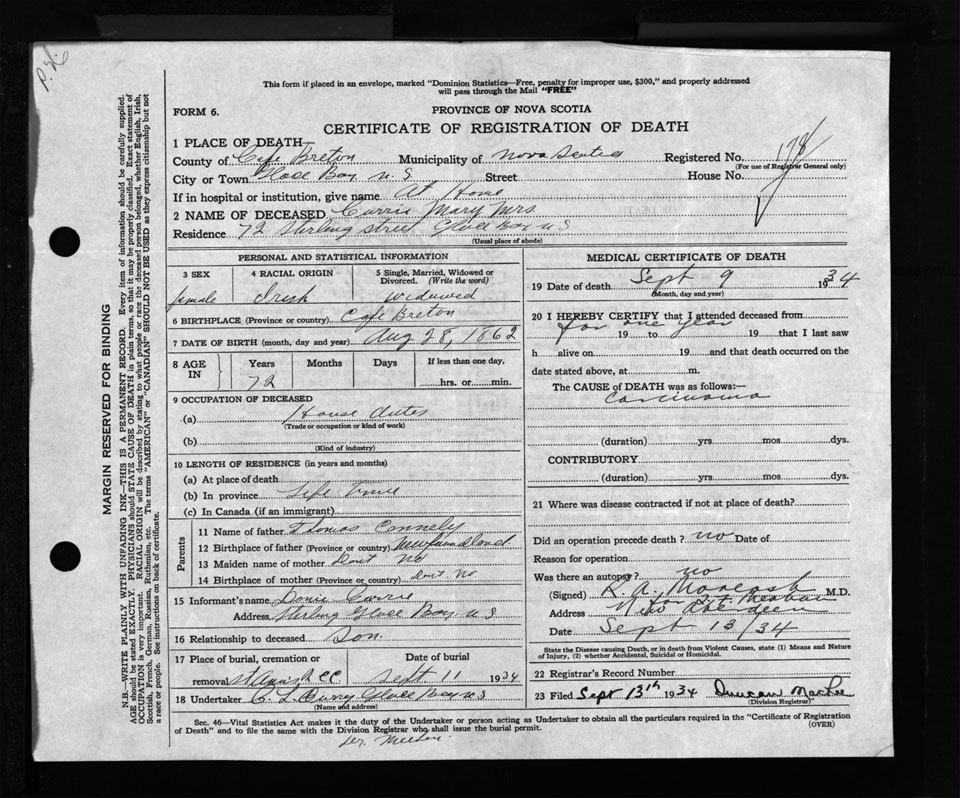 P.H.
This form if placed in an envelope, marked "Dominion Statistics—Free, penalty for improper use, $300," and properly addressed
will pass through the Mail "FREE"
FORM 6.
PROVINCE OF NOVA SCOTIA
CERTIFICATE OF REGISTRATION OF DEATH
1 PLACE OF DEATH—
County of Cape Breton Municipality of Nova Scotia Registered No. 178
(For use of Registrar General only)
City or Town Glace Bay N. S Street House No.
If in hospital or institution, give name At Home
2 NAME OF DECEASED Currie Mary Mrs.
Residence 72 Stirling street Glace Bay N S
(Usual place of abode)
PERSONAL AND STATISTICAL INFORMATION
3 SEX 4 RACIAL ORIGIN 5 Single, Married, Widowed or Divorced. (Write the word)
female Irish widowed
6 BIRTHPLACE (Province or country) Cape Breton
7 DATE OF BIRTH (month, day and year) Aug 28, 1862
8 AGE IN Years Months Days If less than one day,
72 hrs. or min.
9 OCCUPATION OF DECEASED
(a) House duties
(Trade or occupation or kind of work)
(b)
(Kind of industry)
10 LENGTH OF RESIDENCE (in years and months)
(a) At place of death
(b) In province Life Time
(c) In Canada (if an immigrant)
Parents
11 Name of father Thomas Connely
12 Birthplace of father (Province or country) Newfoundland
13 Maiden name of mother Dont No
14 Birthplace of mother (Province or country) Dont No
15 Informant's name Currie
Address Stirling Glace Bay N. S
16 Relationship to deceased Son.
17 Place of burial, cremation or Date of burial
removal St Anns R CC Sept 11 1934
18 Undertaker C. L. Curry Glace Bay N. S
(Name and address)
MEDICAL CERTIFICATE OF DEATH
19 Date of death Sept 9 1934
(Month, day and year)
20 I HEREBY CERTIFY that I attended deceased from
for one year
19 to 19 that I last saw
h alive on 19 and that death occurred on the
date stated above, at m.
The CAUSE of DEATH was as follows:—
Carcinoma
(duration) yrs. mos. dys.
CONTRIBUTORY
(duration) yrs. mos. dys.
21 Where was disease contracted if not at place of death?
Did an operation precede death? no Date of
Reason for operation
Was there an autopsy? no
(Signed) R. A. M.D.
Address
Date Sept 13/34
State the Disease causing Death, or in death from Violent Causes, state (1) Means and Nature
of Injury, (2) whether Accidental, Suicidal or Homicidal.
22 Registrar's Record Number
23 Filed Sept 13th 1934 Duncan
(Division Registrar)
Sec. 46—Vital Statistics Act makes it the duty of the Undertaker or person acting as Undertaker to obtain all the particulars required in the "Certificate of Registration
of Death" and to file the same with the Division Registrar who shall issue the burial permit.
(OVER)
MARGIN RESERVED FOR BINDING
N.B.—WRITE PLAINLY WITH UNFADING INK—THIS IS A PERMANENT RECORD. Every item of information should be carefully supplied.
AGE should be stated EXACTLY. PHYSICIANS should STATE CAUSE OF DEATH in plain terms, so that it may be properly classified. Exact statement of
OCCUPATION is very important. RACIAL ORIGIN will be described by stating to what people or race the deceased person belonged, whether English, Irish,
Scottish, French, German, Russian, Ruthenian, etc. The terms "AMERICAN" or "CANADIAN" SHOULD NOT BE USED as they express citizenship but not
a race or people. See instructions on back of certificate.